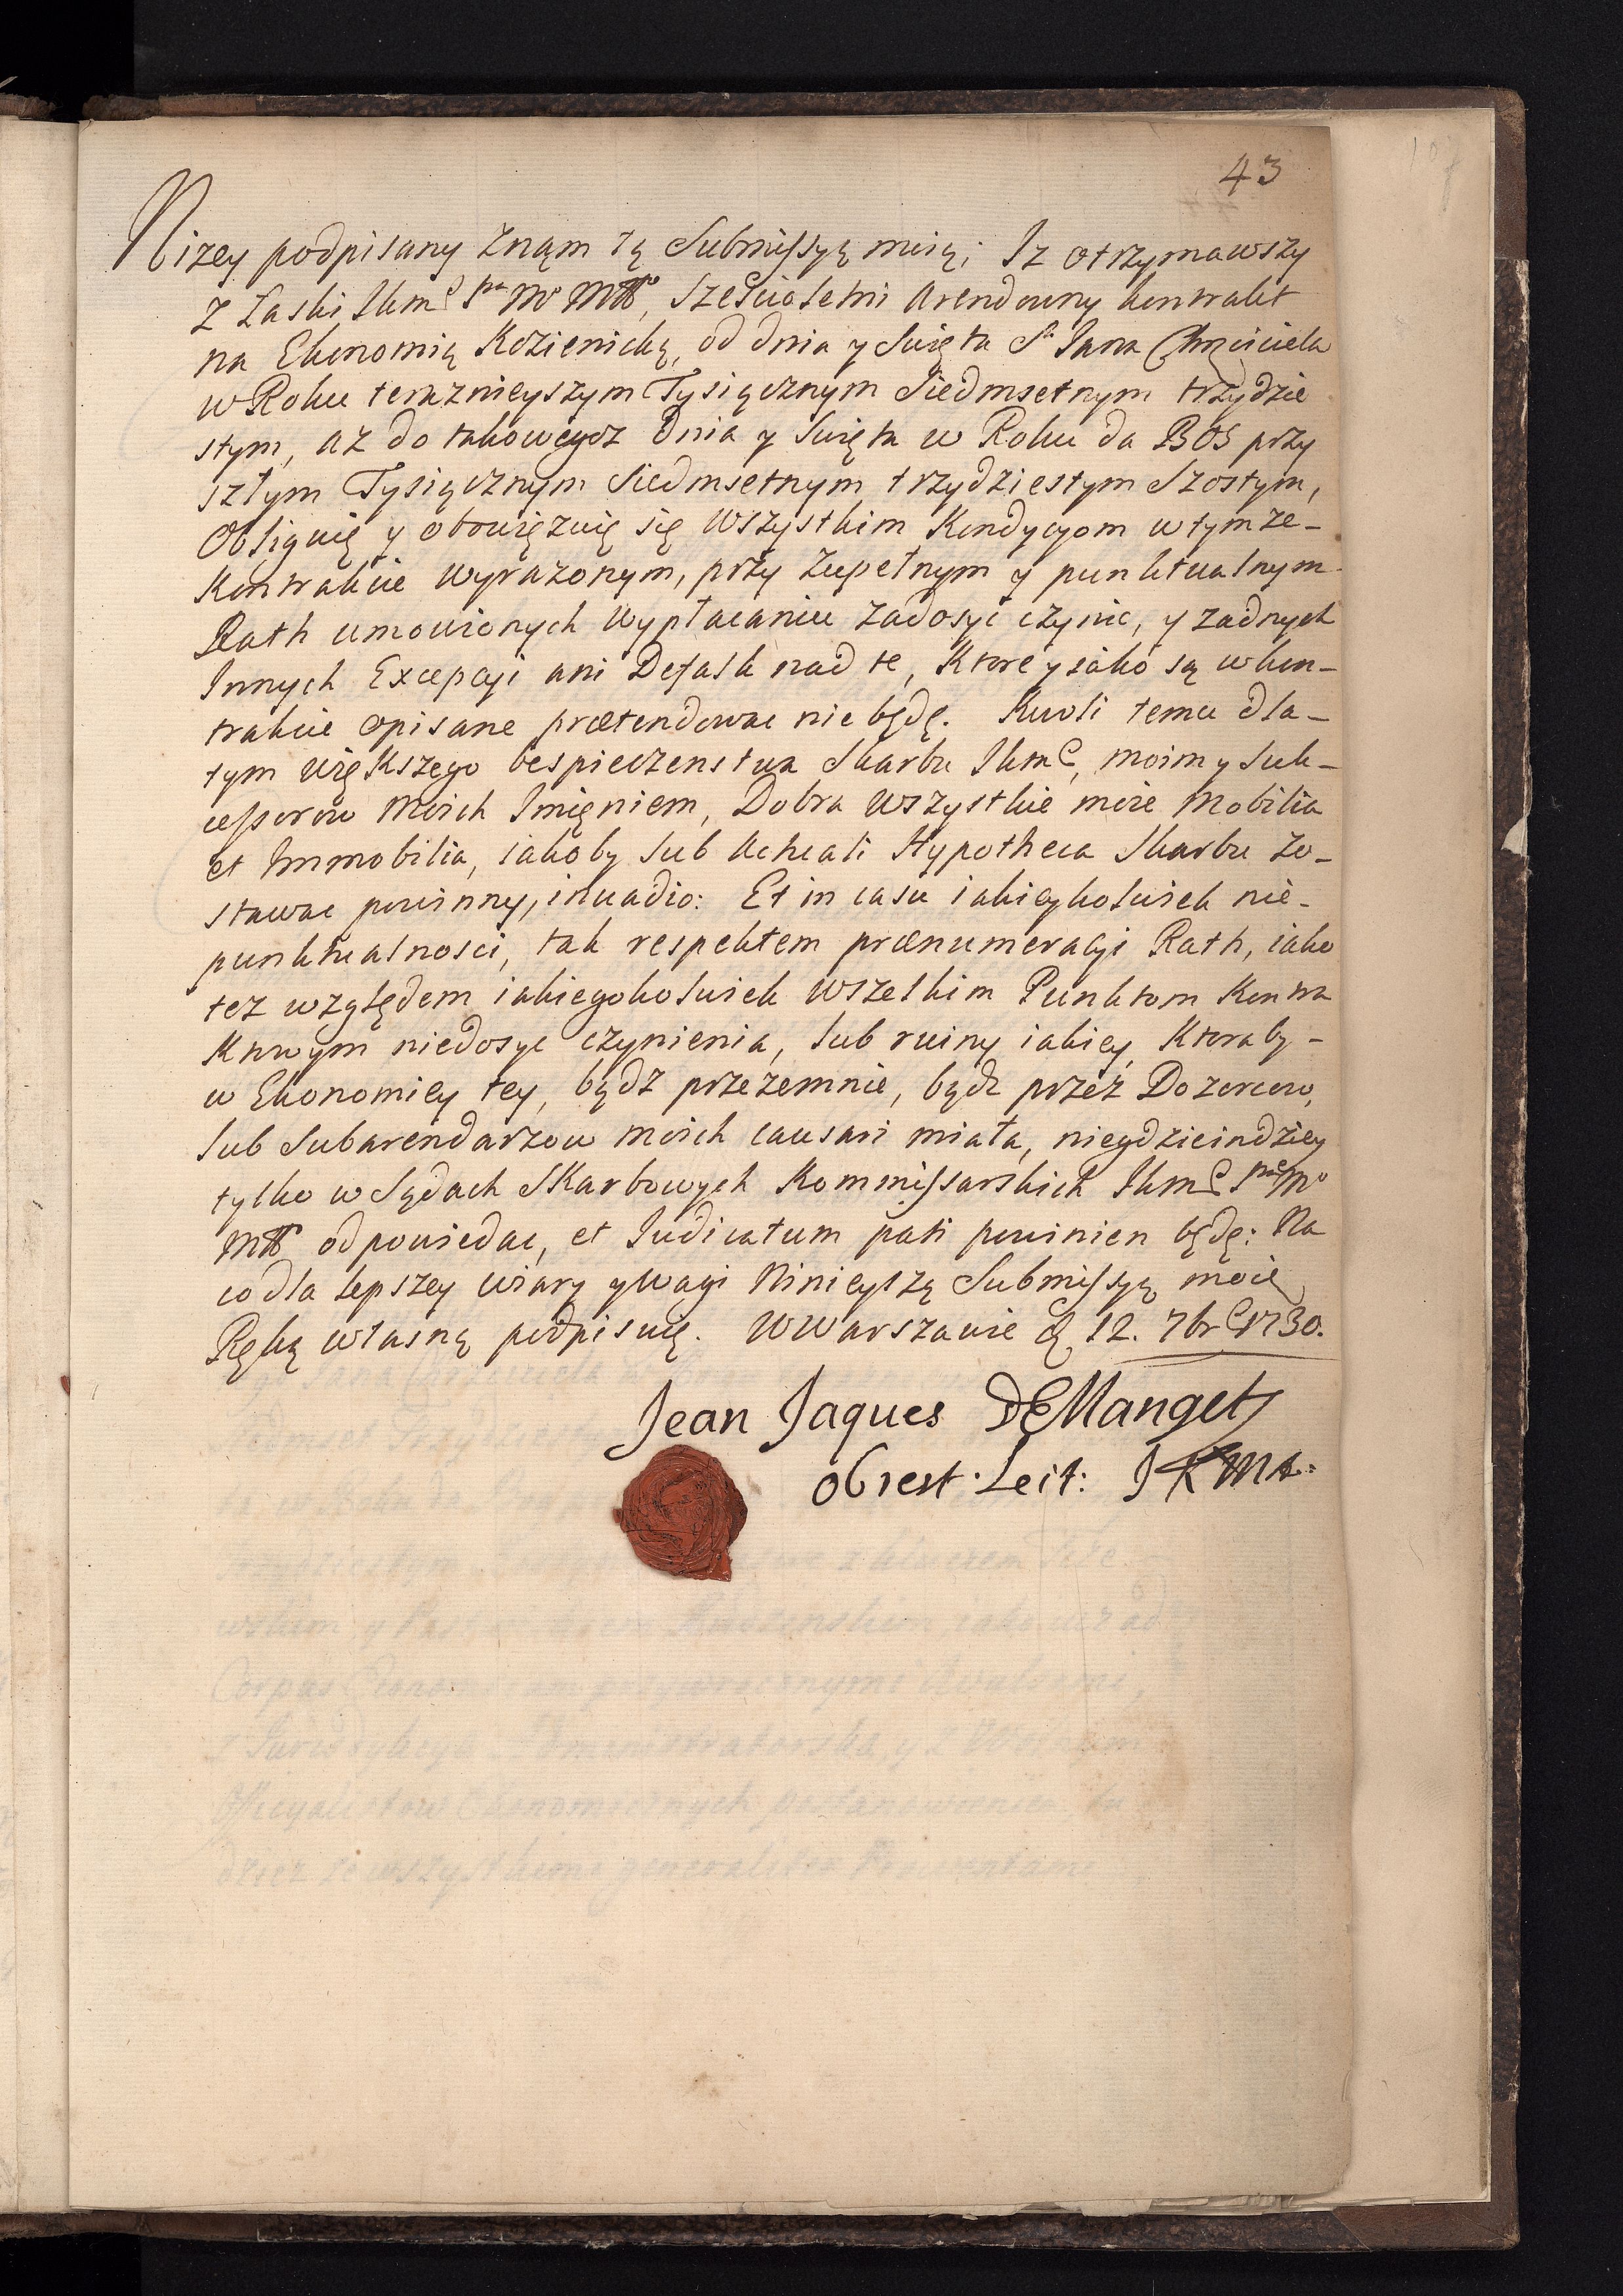 43
Nizey podpisany znąm tą Submissyą moią; Iz otrzymawszy
z Łaski IkmC Pna Mo Mgo, Szescioletni Arendowny kontrakt
na Ekonomią Kozienicką, od dnia y Swięta S. Jana Chrzciciela
w Roku teraznieyszym Tysiącznym Siedmsetnym trzydzie
stym, az do takowegoz Dnia y Swięta w Roku da BOG przy
szłym Tysiącznym Siedmsetnym trzydziestym Szostym,
Obliguię y obowięzuię się wszystkim Kondycyom w tymze-
Kontrakcie wyrazonym, przy zupełnym y punktualnym
Rath umowionych wypłacaniu zadosyc czynic, y zadnych
Innych Excepcyi ani Defalk nad te, Ktore y iako są w kon-
trakcie opisane prætendowac nie będę. Kwoli temu dla-
tym większego bespieczenstwa Skarbu IkmC, moim y Suk-
cessorow moich Imięniem, Dobra wszystkie moie Mobilia
et Immobilia, iakoby sub Actuali Hypotheca Skarbu zo-
stawac powinny, inuadio: Et in casu iakieykolwiek nie-
punktualnosci, tak respektem prænumeracyi Rath, iako
tez względem iakiegokolwiek wszelkim Punktom Kontra
Ktowym niedosyc czynienia, lub ruiny iakiey, Ktoraby-
w Ekonomiey tey, bądz przezemnie, bądz przez Dozorcow,
lub Subarendarzow moich causari miała, niegdzieindziey
tylko w Sądach Skarbowych Kommissarskich IkmC Pna Mo
Mgo odpowiedac, et Iudicatum pati powinien będę: Na
co dla lepszey wiary y wagi Ninieyszą Submissyą moię
Ręką własną podpisuię. w Warszawie D. 12. 7br C 1730.
Jean Jaques DeMangets
obrest. Leit: JKMt: